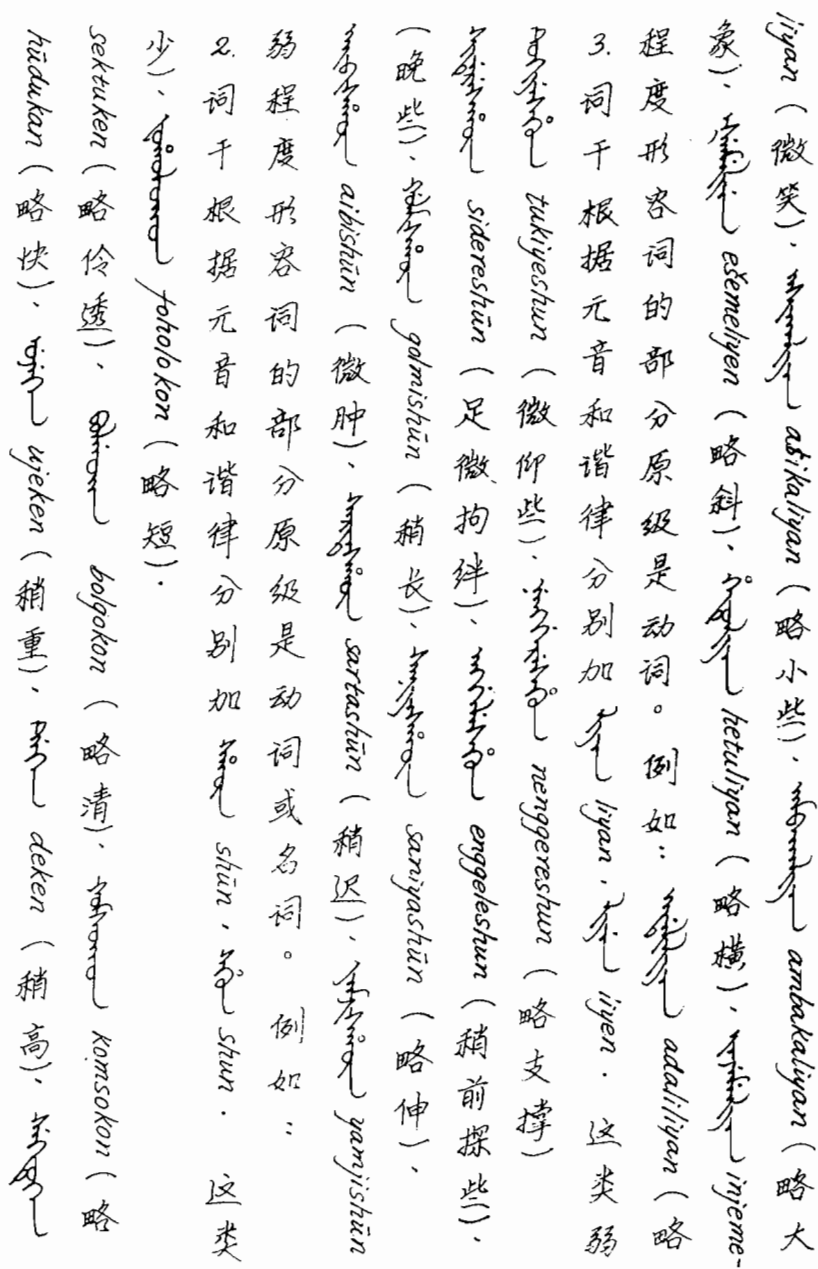 hūdukan（略快）、ᡠᠵᡝᡴᡝᠨ ujeken（稍重）、ᡩᡝᡴᡝᠨ deken（稍高）、ᠰᡝᡴᡨᡠᡴᡝᠨ
sektuken（略伶透）、ᠪᠣᠯᡤᠣᡴᠣᠨ bolgokon（略清）、ᡴᠣᠮᠰᠣᡴᠣᠨ komsokon（略
少）、ᡶᠣᡥᠣᠯᠣᡴᠣᠨ foholokon（略短）.
2. 词干根据元音和谐律分别加 ᠰᡥᡡᠨ shūn、ᠰᡥᡠᠨ shun. 这类
弱程度形容词的部分原级是动词或名词。例如：
ᠠᡳᠪᡳᠰᡥᡡᠨ aibishūn（微肿）、ᠰᠠᡵᡨᠠᠰᡥᡡᠨ sartashūn（稍迟）、ᠶᠠᠮᠵᡳᠰᡥᡡᠨ yamjishūn
（晚些）、ᡤᠣᠯᠮᡳᠰᡥᡡᠨ golmishūn（稍长）、ᠰᠠᠨᡳᠶᠠᠰᡥᡡᠨ saniyashūn（略伸）、
ᠰᡳᡩᡝᡵᡝᠰᡥᡡᠨ sidereshūn（足微拘绊）、ᡝᠩᡤᡝᠯᡝᠰᡥᡠᠨ enggeleshun（稍前探些）、
ᡨᡠᡴᡳᠶᡝᠰᡥᡠᠨ tukiyeshun（微仰些）、ᠨᡝᠩᡤᡝᡵᡝᠰᡥᡠᠨ nenggereshun（略支撑）
3. 词干根据元音和谐律分别加 ᠯᡳᠶᠠᠨ liyan、ᠯᡳᠶᡝᠨ liyen. 这类弱
程度形容词的部分原级是动词。例如：ᠠᡩᠠᠯᡳᠯᡳᠶᠠᠨ adaliliyan（略
象）、ᡝᡧᡝᠮᡝᠯᡳᠶᡝᠨ ešemeliyen（略斜）、ᡥᡝᡨᡠᠯᡳᠶᠠᠨ hetuliyan（略横）、ᡳᠨᠵᡝᠮᡝᠯᡳᠶᠠᠨ injeme-
liyan（微笑）、ᠠᡧᡳᡴᠠᠯᡳᠶᠠᠨ ašikaliyan（略小些）、ᠠᠮᠪᠠᡴᠠᠯᡳᠶᠠᠨ ambakaliyan（略大